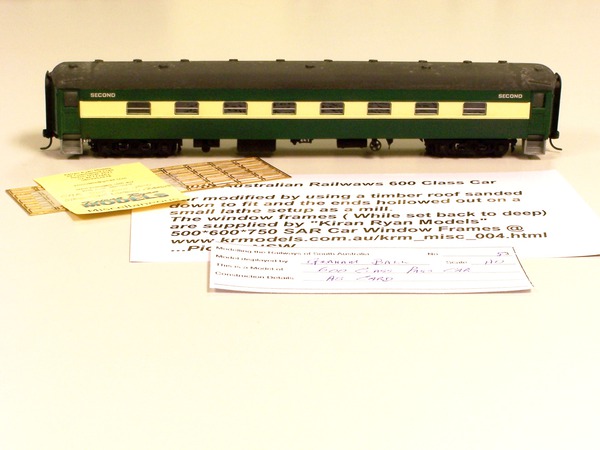 SECOND
SECOND
Australian Railwaws 600 Class Car
modified by using a timber roof sanded
down to fit and the ends hollowed out on a
small lathe setup as a mill.
The window frames ( While set back to deep)
are supplied by "Kiran Ryan Models"
500*600*750 SAR Car Window Frames @
www.krmodels.com.au/krm_misc_004.html
Modelling the Railways of South Australia No. 59
Model displayed by GRAHAM BALL Scale HO
This is a Model of 600 CLASS PASS CAR
Construction Details AS CARD
MODELS